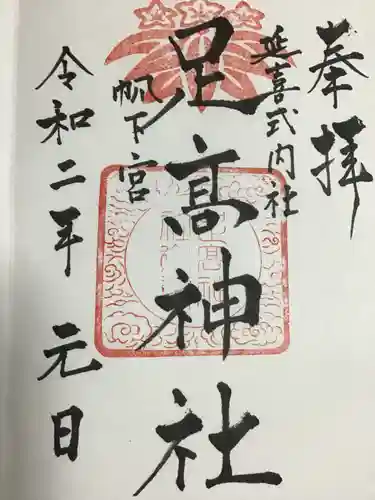 奉拝
延喜式内社
足髙神社
帆下宮
令和二年 元日